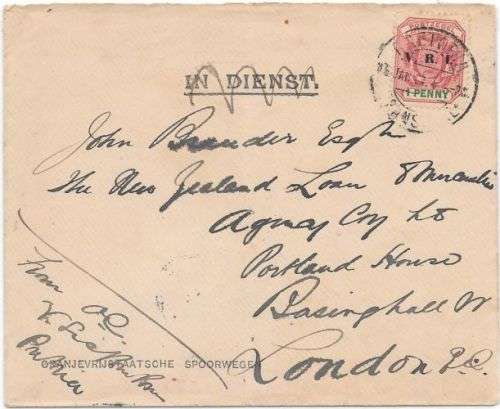 POSTZEGEL
V. R. I.
1 PENNY
IN DIENST.
John Brander Esqr
The New Zealand Loan & Mercantile
Agency Coy Ld
Portland House
Basinghall St
London E.C.
From
Pretoria
ORANJEVRIJSTAATSCHE SPOORWEGEN